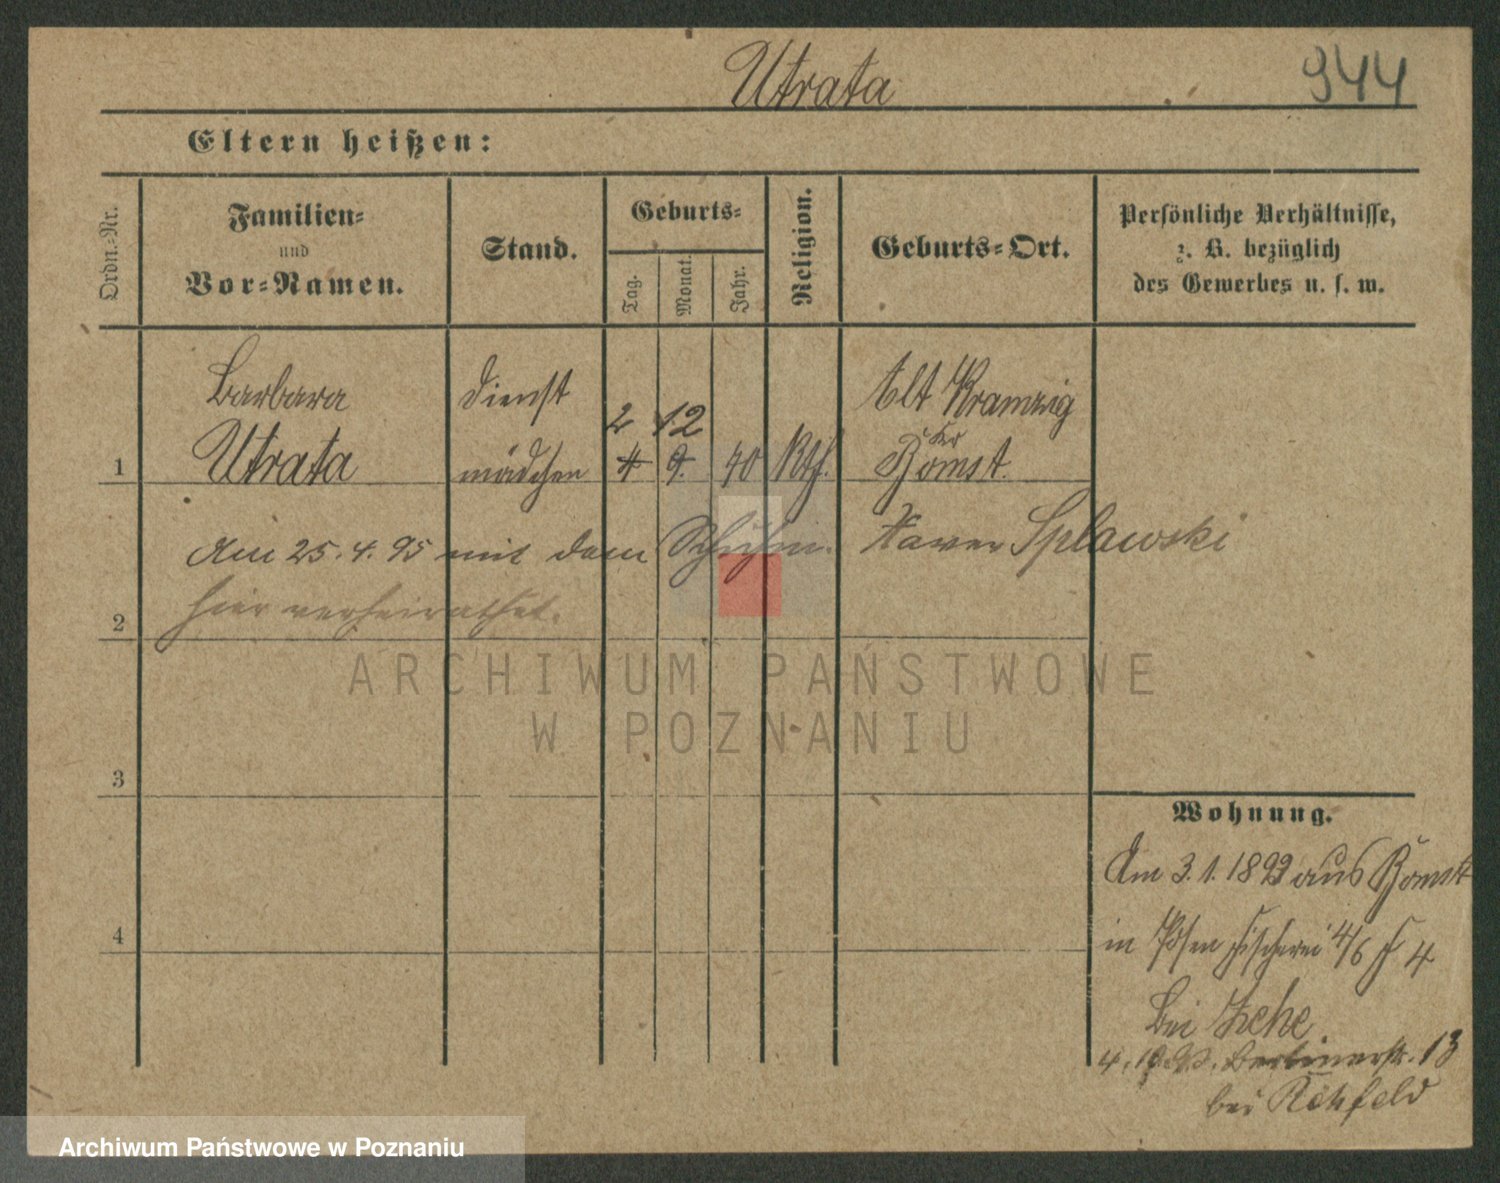 Utrata
944
Eltern heißen:
Ordn.-Nr.
Familien-
und
Vor-Namen.
Stand.
Geburts-
Tag.
Monat.
Jahr.
Religion.
Geburts-Ort.
Persönliche Verhältnisse,
z. B. bezüglich
des Gewerbes u. s. w.
1
Barbara
Utrata
Dienst
mädchen
2 12
4 9. 70 Kth.
Alt Kramzig
Kr
Bomst.
Am 25.4.95 mit dem Schuhm. Xaver Splawski
hier verheirathet.
2
3
4
Wohnung.
Am 3.1.1893 aus Bomst
in Posen Fischerei 4/6 4
bei Zehe
Berlinerstr. 13
bei Rehfeld
ARCHIWUM PAŃSTWOWE
W POZNANIU
Archiwum Państwowe w Poznaniu